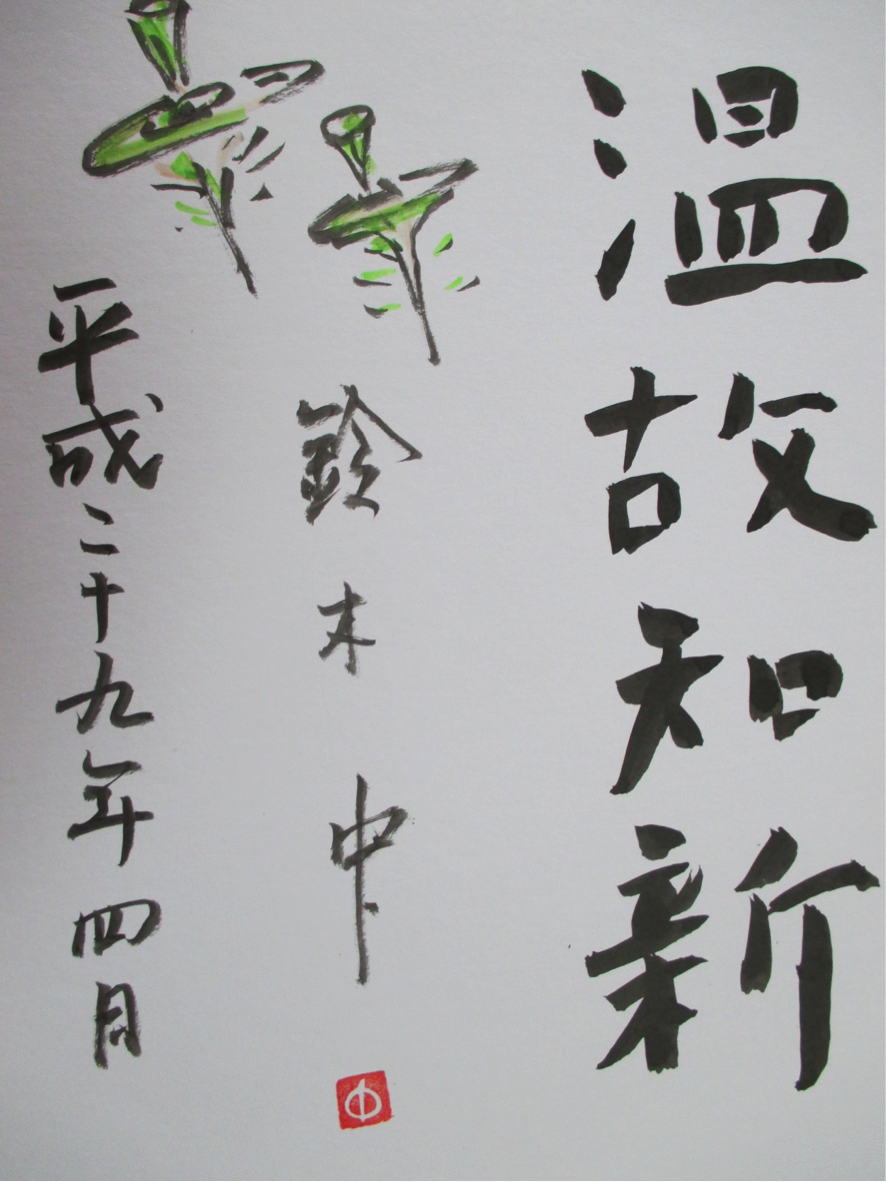 温故知新
鈴木中
平成二十九年四月
中